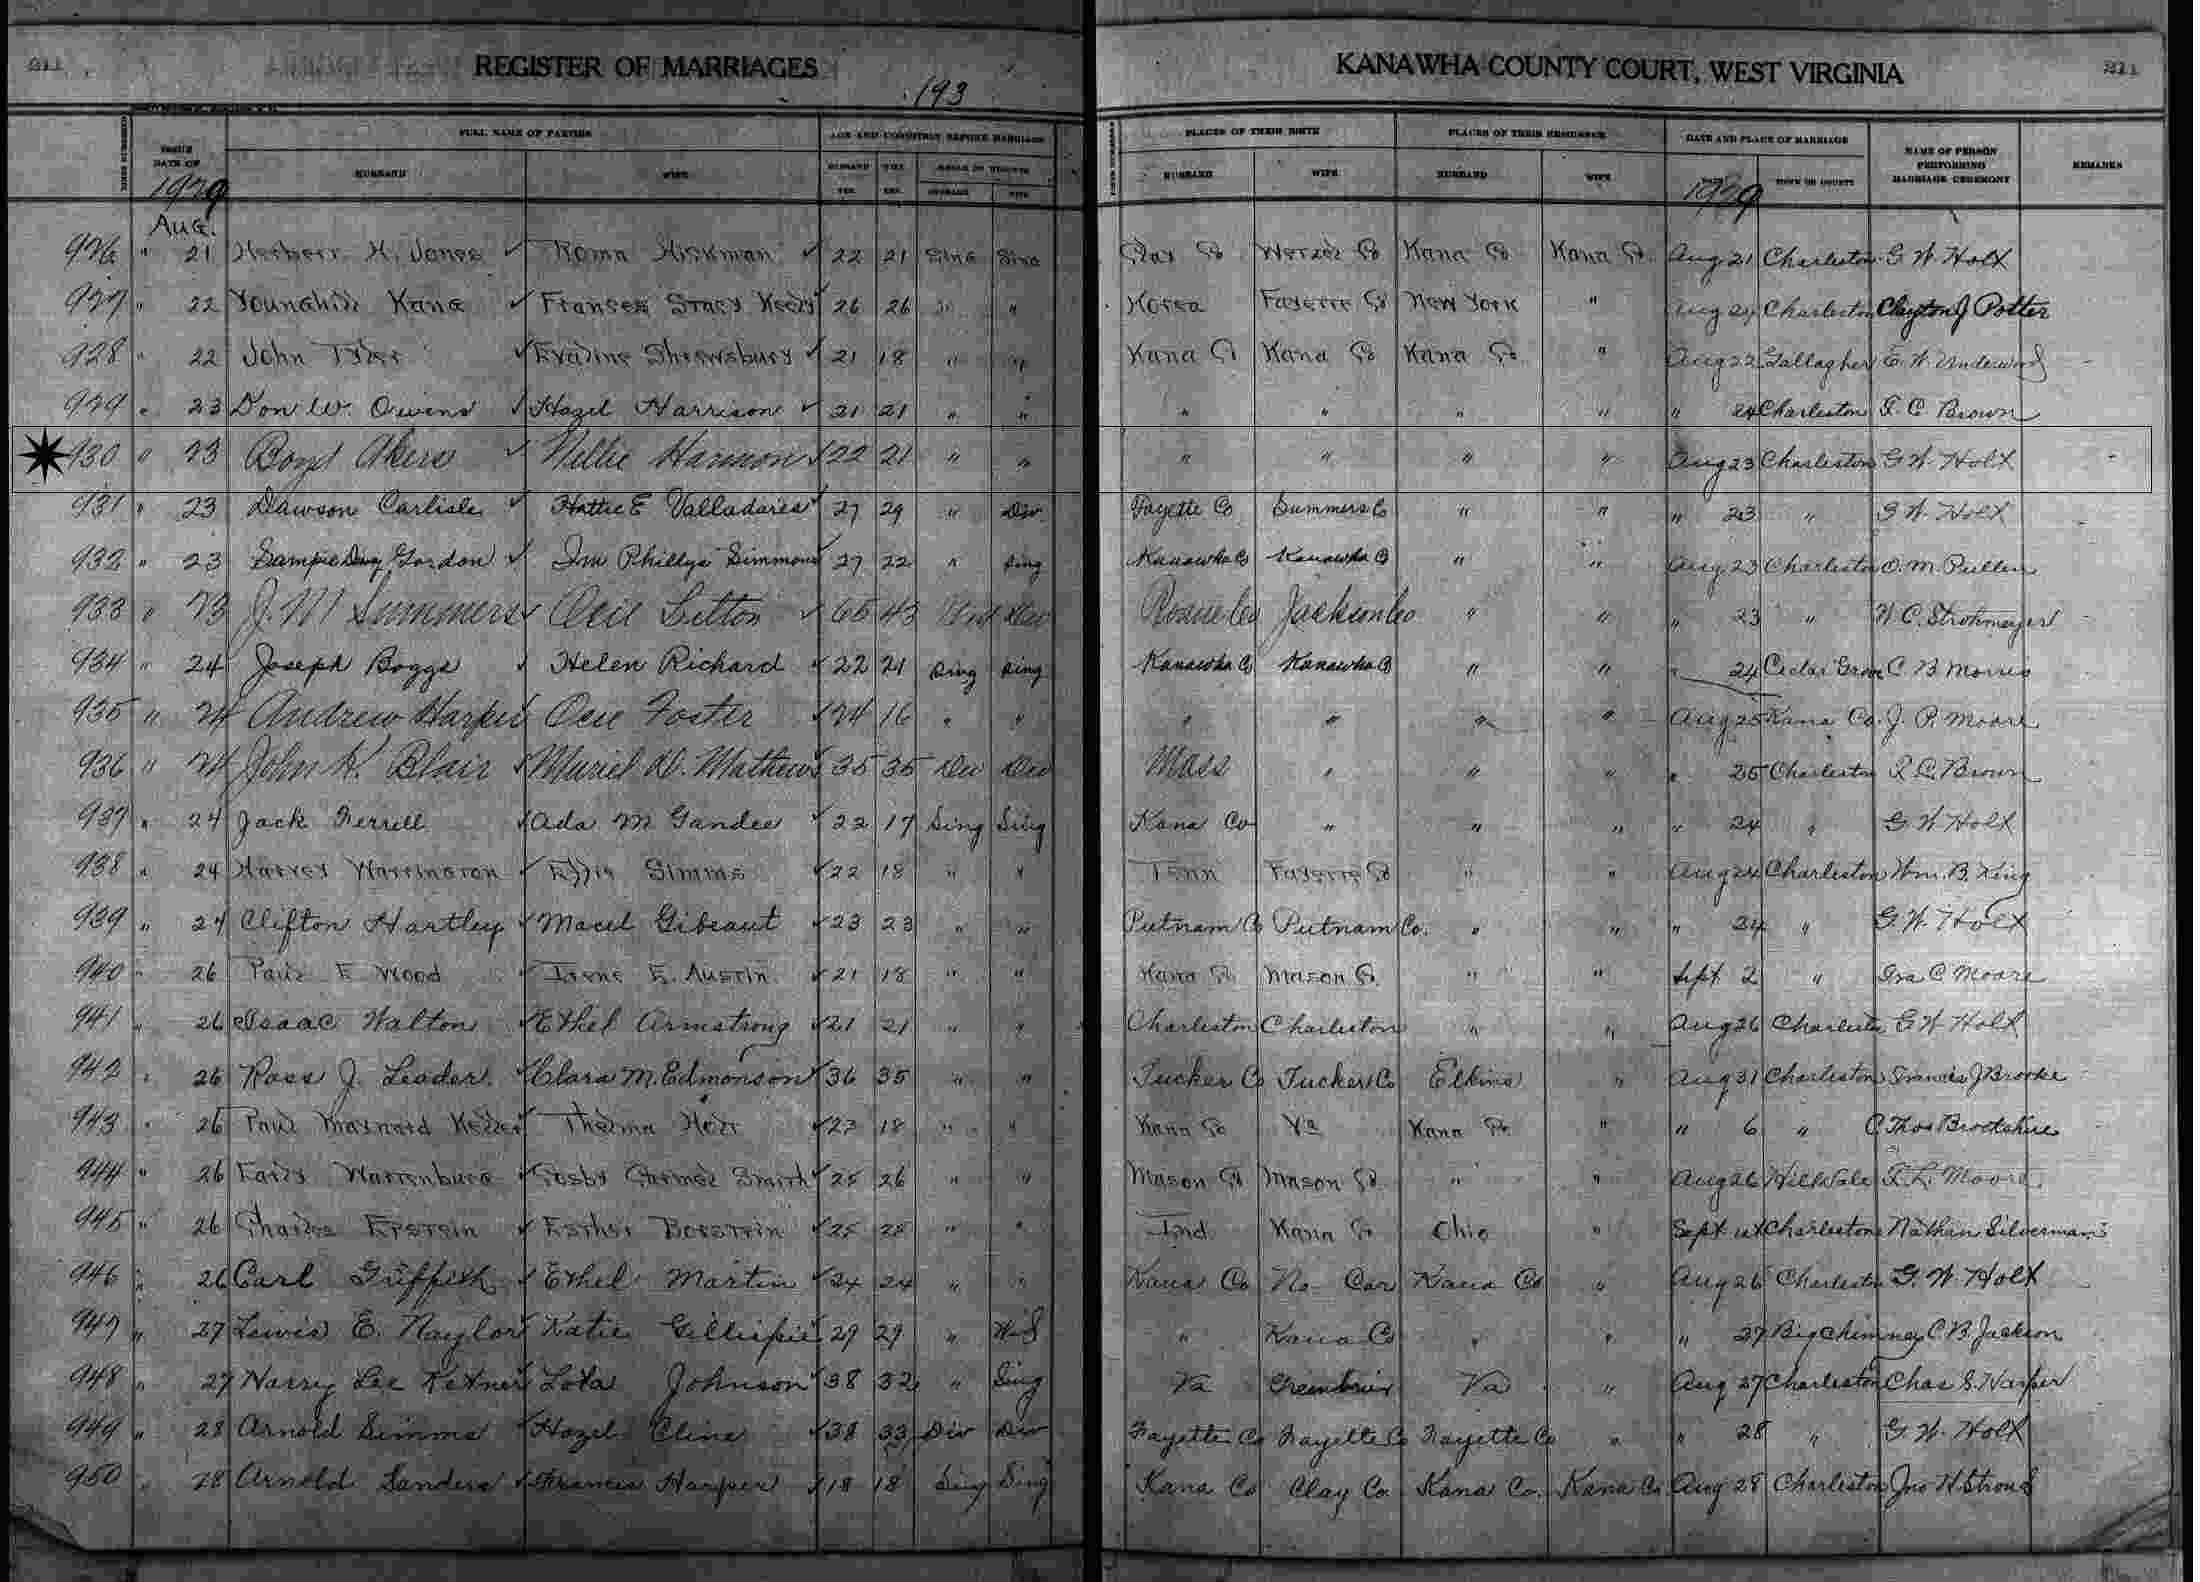 211
REGISTER OF MARRIAGES
193
KANAWHA COUNTY COURT, WEST VIRGINIA
211
ISSUE DATE OF
FULL NAME OF PARTIES
AGE AND CONDITION BEFORE MARRIAGE
PLACES OF THEIR BIRTH
PLACES OF THEIR RESIDENCE
DATE AND PLACE OF MARRIAGE
NAME OF PERSON PERFORMING MARRIAGE CEREMONY
REMARKS
HUSBAND WIFE HUSBAND YRS. WIFE YRS. SINGLE OR WIDOWED HUSBAND WIFE
HUSBAND WIFE HUSBAND WIFE DATE TOWN OR COUNTY
1929 1929
Aug.
926 " 21 Herbert H. Jones ✓ Roma Hickman ✓ 22 21 Sing Sing Clay Co Wetzel Co Kana Co Kana Co Aug 21 Charleston G W Holt
927 " 22 Younghill Kang ✓ Frances Stacy Keely ✓ 26 26 " " Korea Fayette Co New York " Aug 24 Charleston Clayton J Potter
928 " 22 John Tyler ✓ Evaline Shrewsbury ✓ 21 18 " " Kana Co Kana Co Kana Co " Aug 22 Gallagher E. W. Underwood
929 " 23 Don W. Owens ✓ Hazel Harrison ✓ 21 21 " " " " " " " 24 Charleston F. C Brown
930 " 23 Boyd Akers ✓ Nellie Harmon ✓ 22 21 " " " " " " Aug 23 Charleston G W Holt
931 " 23 Dawson Carlisle ✓ Hattie E Valladares ✓ 27 29 " Div. Fayette Co Summers Co " " " 23 " G W Holt
932 " 23 Gordon ✓ Phillys Simmons ✓ 27 22 " Sing Kanawha Co Kanawha Co " " Aug 23 Charleston O. M. Pullen
933 " 23 J. M Summers ✓ Ocie Litton ✓ 65 43 Wid Div Roane Co Jackson Co " " " 23 " W. C. Strohmeyer
934 " 24 Joseph Boggs ✓ Helen Richard ✓ 22 21 Sing Sing Kanawha Co Kanawha Co " " " 24 Cedar Grove C. B Morris
935 " 24 Andrew Harper ✓ Ocie Foster ✓ 24 16 " " " " " " Aug 25 Kana Co. J. P. Moore
936 " 24 John K. Blair ✓ Muriel D. Mathews ✓ 35 35 Div Div Mass " " " " 25 Charleston F. C. Brown
937 " 24 Jack Ferrell ✓ Ada M Gandee ✓ 22 17 Sing Sing Kana Co " " " " 24 " G. W Holt
938 " 24 Harvey Warrington ✓ Effie Simms ✓ 22 18 " " Tenn Fayette Co " " Aug 24 Charleston Wm. B. King
939 " 24 Clifton Hartley ✓ Macel Gibeaut ✓ 23 23 " " Putnam Co Putnam Co. " " " 24 " G. W. Holt
940 " 26 Paul E Wood ✓ Irene E. Austin ✓ 21 18 " " Kana Co Mason Co. " " Sept 2 " Ira C Moore
941 " 26 Isaac Walton ✓ Ethel Armstrong ✓ 21 21 " " Charleston Charleston " " Aug 26 Charleston G W Holt
942 " 26 Ross J. Leader ✓ Clara M. Edmonson ✓ 36 35 " " Tucker Co Tucker Co Elkins " Aug 31 Charleston Francis J Brooke
943 " 26 Paul Maynard ✓ Thelma ✓ 23 18 " " Kana Co Va Kana Co " " 6 " C. Thos Brookshire
944 " 26 Early Warrenburg ✓ Smith ✓ 25 26 " " Mason Co Mason Co. " " Aug 26 Hilldale F. L. Moore
945 " 26 Charles Epstein ✓ Esther ✓ 25 25 " " Ind Kana Co Ohio " Sept 1st Charleston Nathan Silverman
946 " 26 Carl Griffith ✓ Ethel Martin ✓ 24 24 " " Kana Co No Car Kana Co " Aug 26 Charleston G. W Holt
947 " 27 Lewis E. Naylor ✓ Katie Gillispie ✓ 29 29 " Wid " Kana Co " " " 27 Big Chimney C. B. Jackson
948 " 27 Harry Lee Ketner ✓ Lola Johnson ✓ 38 32 " Sing Va Greenbrier Va " Aug 27 Charleston Chas S. Harper
949 " 28 Arnold Simms ✓ Hazel Cline ✓ 38 33 Div Div Fayette Co Fayette Co Fayette Co " " 28 " G. W. Holt
950 " 28 Arnold Sanders ✓ Francis Harper ✓ 18 18 Sing Sing Kana Co Clay Co Kana Co. Kana Co Aug 28 Charleston Jno H Stroud